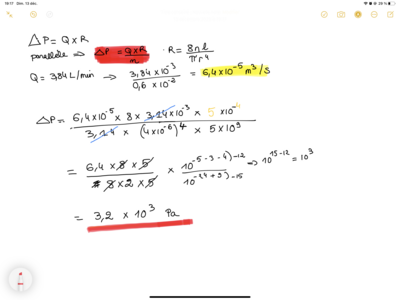 19:17 Dim. 13 déc.
ΔP = Q × R
parallèle ⇒ ΔP = Q×R/m · R = 8ηl/πr⁴
Q = 3,84 L/min → 3,84 × 10⁻³ / 0,6 × 10⁻² = 6,4 × 10⁻⁵ m³/s
ΔP = 6,4 × 10⁻⁵ × 8 × 3,14 × 10⁻³ × 5 × 10⁻⁴ / 3,14 × (4×10⁻⁶)⁴ × 5 × 10⁹
= 6,4 × 8 × 5 / 8 × 2 × 5 × 10⁻⁵⁻³⁻⁴⁾⁻¹² / 10⁻²⁴⁺⁹⁾⁻¹⁵ ⇒ 10¹⁵⁻¹² = 10³
= 3,2 × 10³ Pa